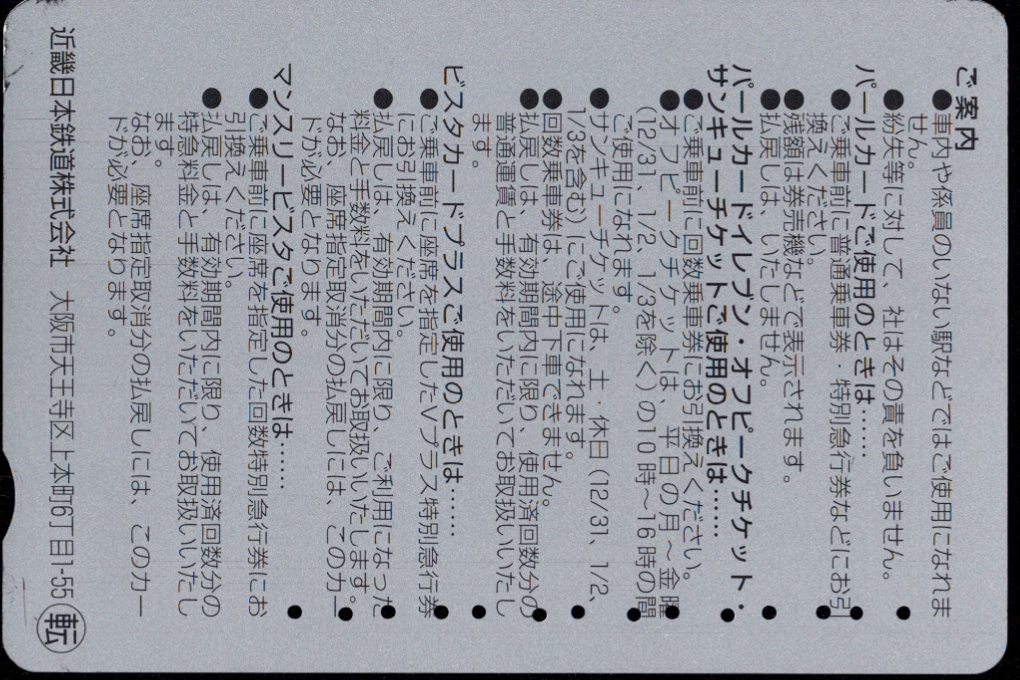 ご案内
●車内や係員のいない駅などではご使用になれま
せん。
●紛失等に対して、社はその責を負いません。
パールカードご使用のときは……
●ご乗車前に普通乗車券・特別急行券などにお引
換えください。
●残額は券売機などで表示されます。
●払戻しは、いたしません。
パールカードイレブン・オフピークチケット・
サンキューチケットご使用のときは……
●ご乗車前に回数乗車券にお引換えください。
●オフピークチケットは、平日の月～金曜
(12/31、1/2、1/3を除く)の10時～16時の間
ご使用になれます。
●サンキューチケットは、土・休日(12/31、1/2、
1/3を含む)にご使用になれます。
●回数乗車券は、途中下車できません。
●払戻しは、有効期間内に限り、使用済回数分の
普通運賃と手数料をいただいてお取扱いいたし
ます。
ビスタカードプラスご使用のときは……
●ご乗車前に座席を指定したVプラス特別急行券
にお引換えください。
●払戻しは、有効期間内に限り、ご利用になった
料金と手数料をいただいてお取扱いいたします。
なお、座席指定取消分の払戻しには、このカー
ドが必要となります。
マンスリービスタご使用のときは……
●ご乗車前に座席を指定した回数特別急行券にお
引換えください。
●払戻しは、有効期間内に限り、使用済回数分の
特急料金と手数料をいただいてお取扱いいたし
ます。
なお、座席指定取消分の払戻しには、このカー
ドが必要となります。
近畿日本鉄道株式会社 大阪市天王寺区上本町6丁目1-55 ㊀転